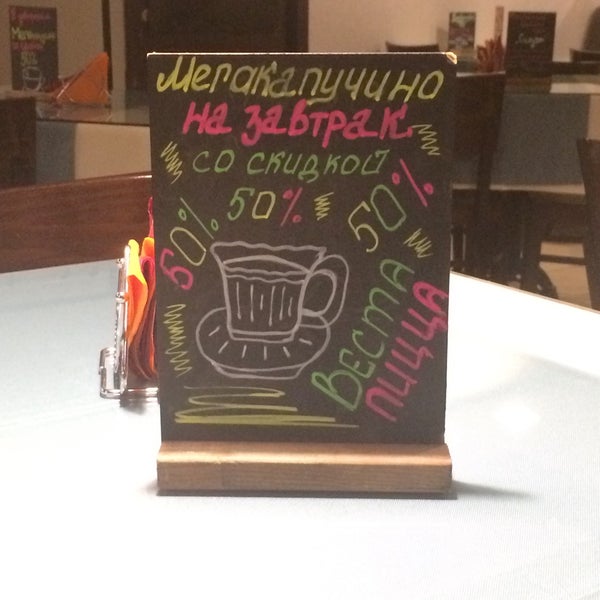 Мегакапучино
на завтрак
со скидкой
50% 50% 50%
Веста
пицца